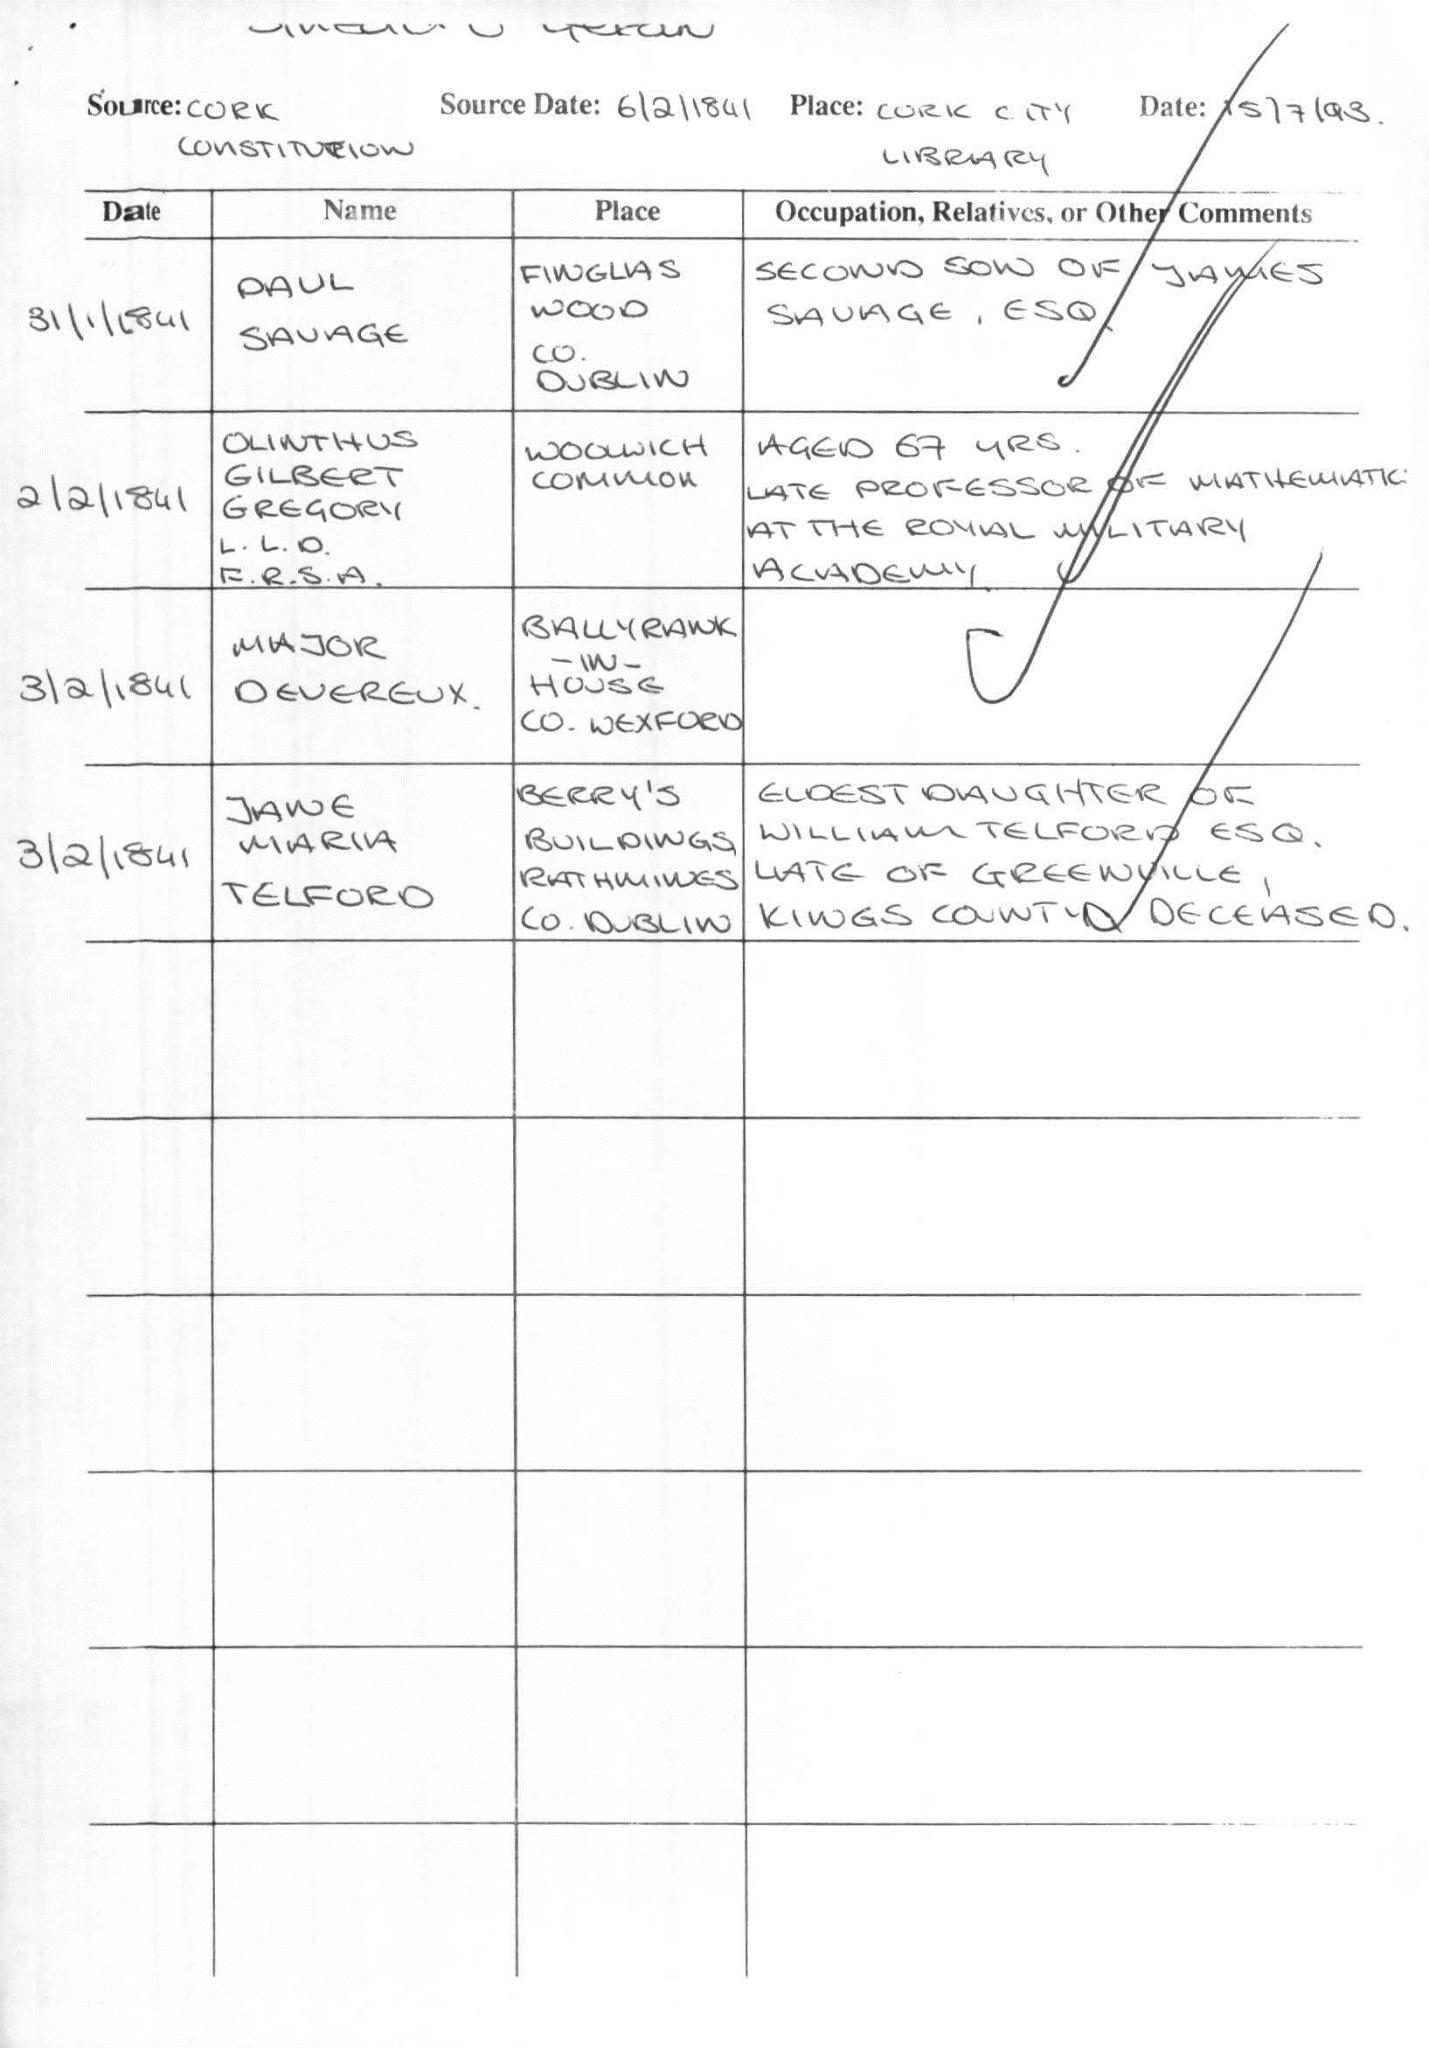 Source: CORK Source Date: 6/2/1841 Place: CORK CITY Date: 15/7/93.
CONSTITUTION LIBRARY
Date Name Place Occupation, Relatives, or Other Comments
31/1/1841
PAUL
SAVAGE
FINGLAS
WOOD
CO.
DUBLIN
SECOND SON OF JAMES
SAVAGE, ESQ.
2/2/1841
OLINTHUS
GILBERT
GREGORY
L.L.D.
F.R.S.A.
WOOLWICH
COMMON
AGED 67 YRS.
LATE PROFESSOR OF MATHEMATIC
AT THE ROYAL MILITARY
ACADEMY
3/2/1841
MAJOR
DEVEREUX.
BALLYRANK
-IN-
HOUSE
CO. WEXFORD
3/2/1841
JANE
MARIA
TELFORD
BERRY'S
BUILDINGS,
RATHMINES
CO. DUBLIN
ELDEST DAUGHTER OF
WILLIAM TELFORD ESQ.
LATE OF GREENVILLE,
KINGS COUNTY DECEASED.